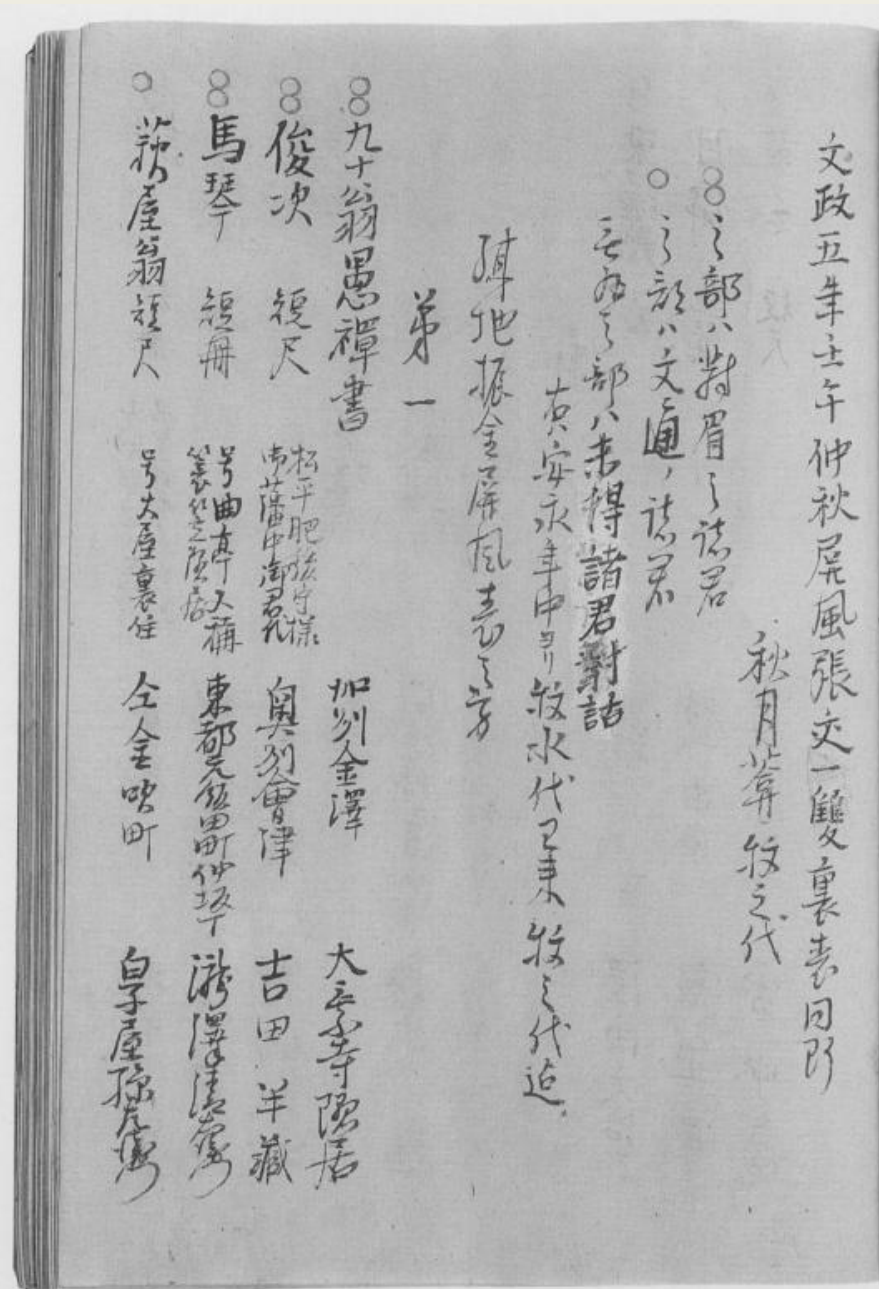 文政五年壬午仲秋屏風張交一雙裏表同断
秋月菴牧之代
〇〇之部ハ對眉之諸君
〇之部ハ文通ノ諸君
無為之部ハ未得諸君對話
右安永年中ヨリ牧水代已来牧之代迠
地振金屏風表之方
第一
〇〇九十翁愚禅書 加州金澤 大乗寺隠居
〇〇俊次 短尺 松平肥後守様 御藩中御君代 奥州會津 吉田半藏
〇〇馬琴 短冊 号曲亭又稱 簑笠 東都元飯田町仲坂 瀧澤清右衛門
〇萩屋翁 短尺 号大屋裏住 仝金吹町 白子屋孫左衛門